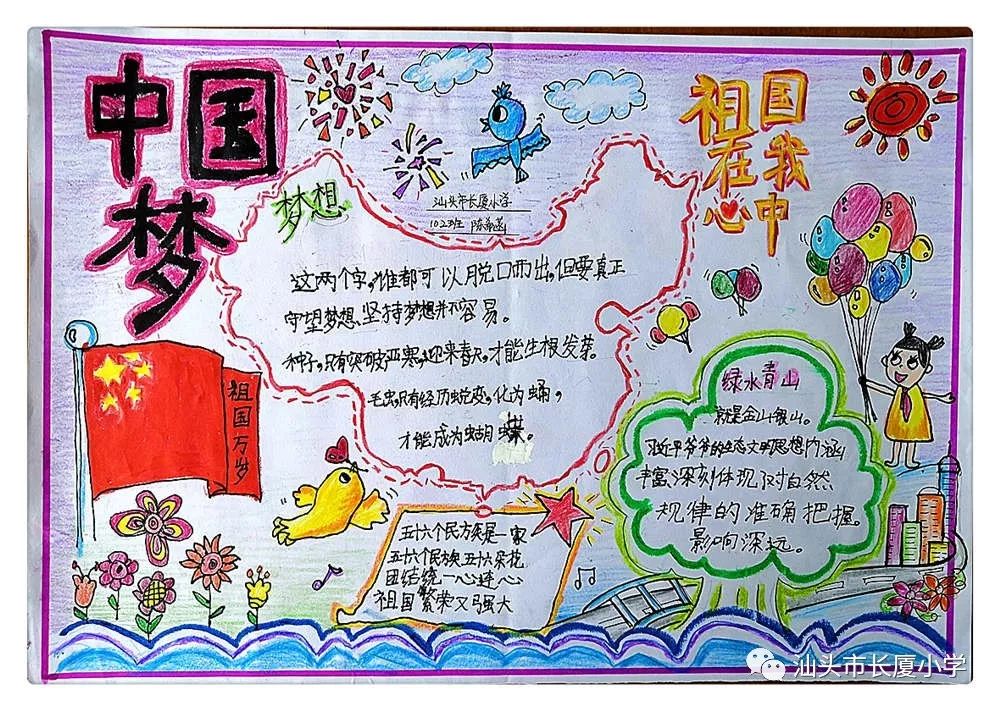 中国
梦
祖国
在我
心中
梦想
汕头市长厦小学
这两个字，谁都可以脱口而出，但要真正
守望梦想、坚持梦想并不容易。
种子，只有突破严寒，迎来春天，才能生根发芽。
毛虫，只有经历蜕变，化为蛹，
才能成为蝴蝶。
祖国万岁
绿水青山
就是金山银山。
习近平爷爷的生态文明思想内涵
丰富深刻体现对自然
规律的准确把握。
影响深远。
五十六个民族是一家
五十六个民族五十六朵花
团结绕一心连心
祖国繁荣又强大
汕头市长厦小学